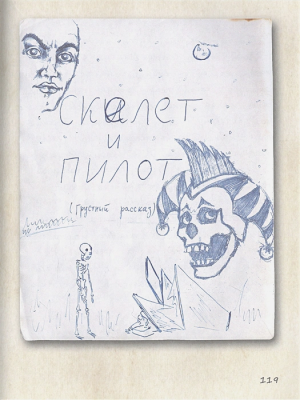 СКЕЛЕТ
и
ПИЛОТ
(Грустный рассказ)
119